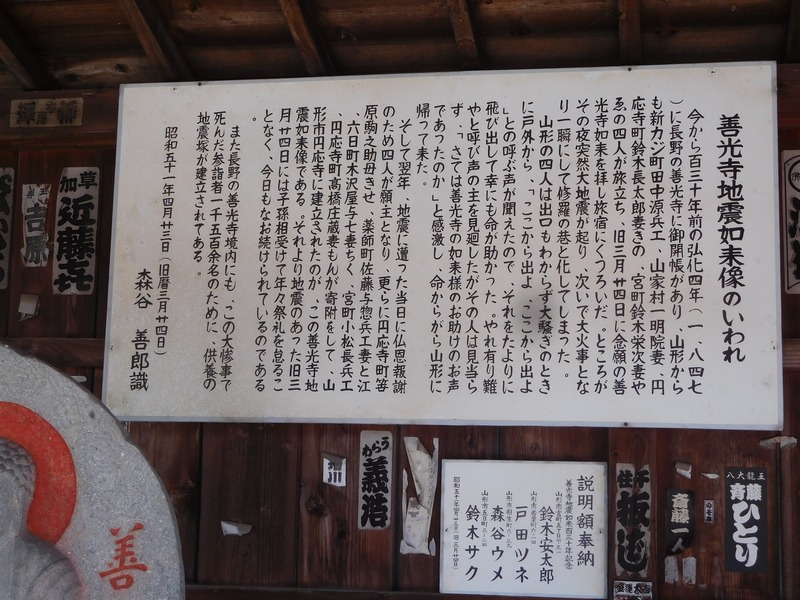 善光寺地震如来像のいわれ
今から百三十年前の弘化四年（一、八四七
）に長野の善光寺に御開帳があり、山形から
も新カジ町田中源兵工、山家村一明院妻、円
応寺町鈴木長太郎妻きの、宮町鈴木栄次妻や
ゑの四人が旅立ち、旧三月廿四日に念願の善
光寺如来を拝し旅宿にくつろいだ。ところが
その夜突然大地震が起り、次いで大火事とな
り一瞬にして修羅の巷と化してしまった。
山形の四人は出口もわからず大騒ぎのとき
に戸外から、「ここから出よ、ここから出よ
」との呼ぶ声が聞えたので、それをたよりに
飛び出して幸にも命が助かった。やれ有り難
やと呼び声の主を見廻したがその人は見当ら
ず、「さては善光寺の如来様のお助けのお声
であったのか」と感激し、命からがら山形に
帰って来た。
そして翌年、地震に遭った当日に仏恩報謝
のため四人が願主となり、更らに円応寺町笒
原駒之助母きせ、薬師町佐藤与惣兵工妻と江
、六日町木沢屋与七妻ちく、宮町小松長兵工
、円応寺町髙橋庄蔵妻もんが寄附をして、山
形市円応寺に建立されたのが、この善光寺地
震如来像である。それより地震のあった旧三
月廿四日には子孫相受けて年々祭礼を怠るこ
となく、今日もなお続けられているのである
。
また長野の善光寺境内にも、この大惨事で
死んだ参詣者一千五百余名のために、供養の
地震塚が建立されてある。
昭和五十一年四月廿三日（旧暦三月廿四日）
森谷 善郎識
説明額奉納
善光寺地震如来百三十年記念
鈴木安太郎
戸田ツネ
森谷ウメ
鈴木サク
善
草加
近藤
吉原
わらび
義浩
千住
斎藤一人
八大龍王
斎藤ひとり